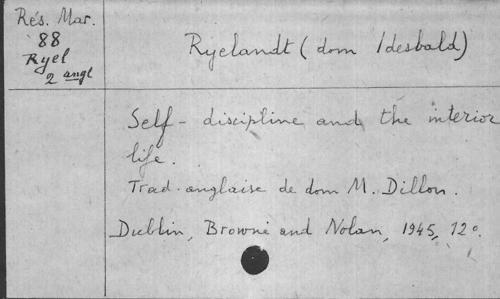 Rés. Mar.
88
Ryel
2 angl
Ryelandt (dom Idesbald)
Self-discipline and the interior
life.
Trad. anglaise de dom M. Dillon.
Dublin, Browne and Nolan, 1945, 12°.